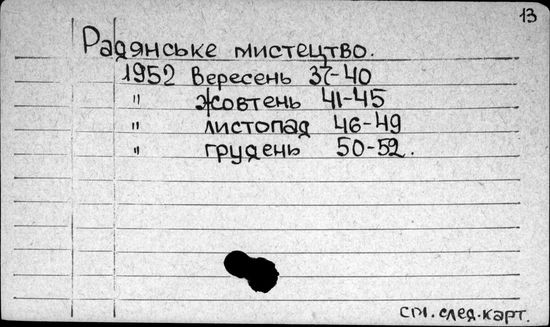 13
Радянське мистецтво.
1952 Вересень 37-40
" Жовтень 41-45
" листопад 46-49
" грудень 50-52.
см. след. карт.